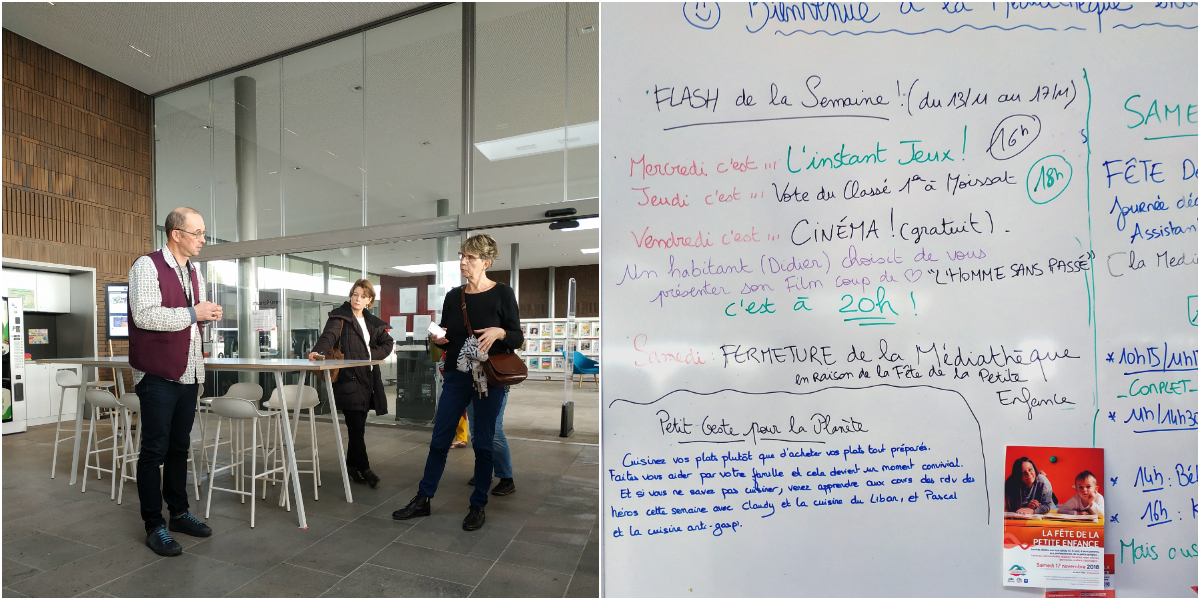 Bienvenue à la Médiathèque
FLASH de la Semaine ! (du 13/11 au 17/11)
Mercredi c'est ... L'instant Jeux ! 16h
Jeudi c'est ... Vote du Classé 1er à Moissat 18h
Vendredi c'est ... CINÉMA ! (gratuit).
Un habitant (Didier) choisit de vous
présenter son Film coup de ♡ "L'HOMME SANS PASSÉ"
c'est à 20h !
Samedi : FERMETURE de la Médiathèque
en raison de la Fête de la Petite
Enfance
Petit Geste pour la Planète
Cuisinez vos plats plutôt que d'acheter vos plats tout préparés.
Faites vous aider par votre famille et cela devient un moment convivial.
Et si vous ne savez pas cuisiner, venez apprendre aux cours des rdv des
héros cette semaine avec Claudy et la cuisine du Liban, et Pascal
et la cuisine anti-gaspi.
SAME
FÊTE DE
Journée dé
Assistan
la Medi
*10h15/11h15
_COMPLET_
* 11h/11h30
* 14h : Bé
* 16h : K
Mais aus
LA FÊTE DE LA
PETITE ENFANCE
Samedi 17 novembre 2018